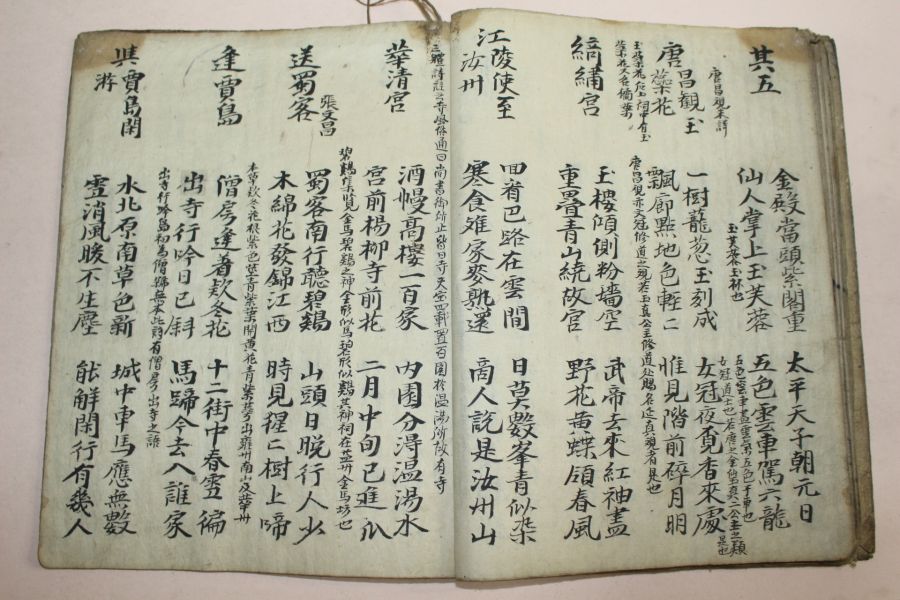 其五
金殿當頭紫閣重
仙人掌上玉芙蓉
玉芙蓉玉杯也
太平天子朝元日
五色雲車駕六龍
唐昌觀玉
蘂花
一樹籠葱玉刻成
飄廊點地色輕〻
女冠夜覓香來處
惟見階前碎月明
綺繡宮
玉樓傾側粉墻空
重疊青山繞故宮
武帝去來紅袖盡
野花黄蝶領春風
江陵使至
汝州
回看巴路在雲間
寒食離家麥熟還
日暮數峯青似染
商人說是汝州山
華清宮
酒幔高樓一百家
宮前楊柳寺前花
內園分得温湯水
二月中旬已進瓜
送蜀客
張文昌
蜀客南行聽碧鷄
木綿花發錦江西
山頭日晚行人少
時見猩〻樹上啼
逢賈島
僧房逢着欵冬花
出寺行吟日已斜
十二街中春雪徧
馬蹄今去入誰家
出寺行吟島初為僧號無本此詩有僧房出寺之語
與賈島閑
游
水北原南草色新
雪消風暖不生塵
城中車馬應無數
能解閑行有幾人